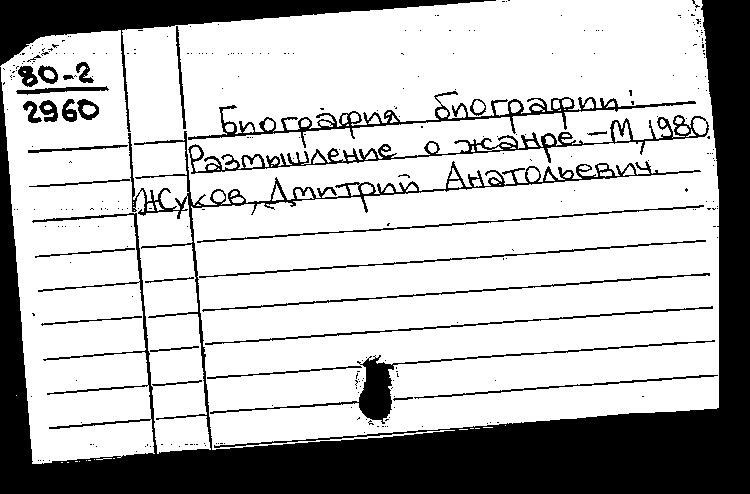 80-2
2960
Биография биографии:
Размышление о жанре.-М,1980.
Жуков, Дмитрий Анатольевич.